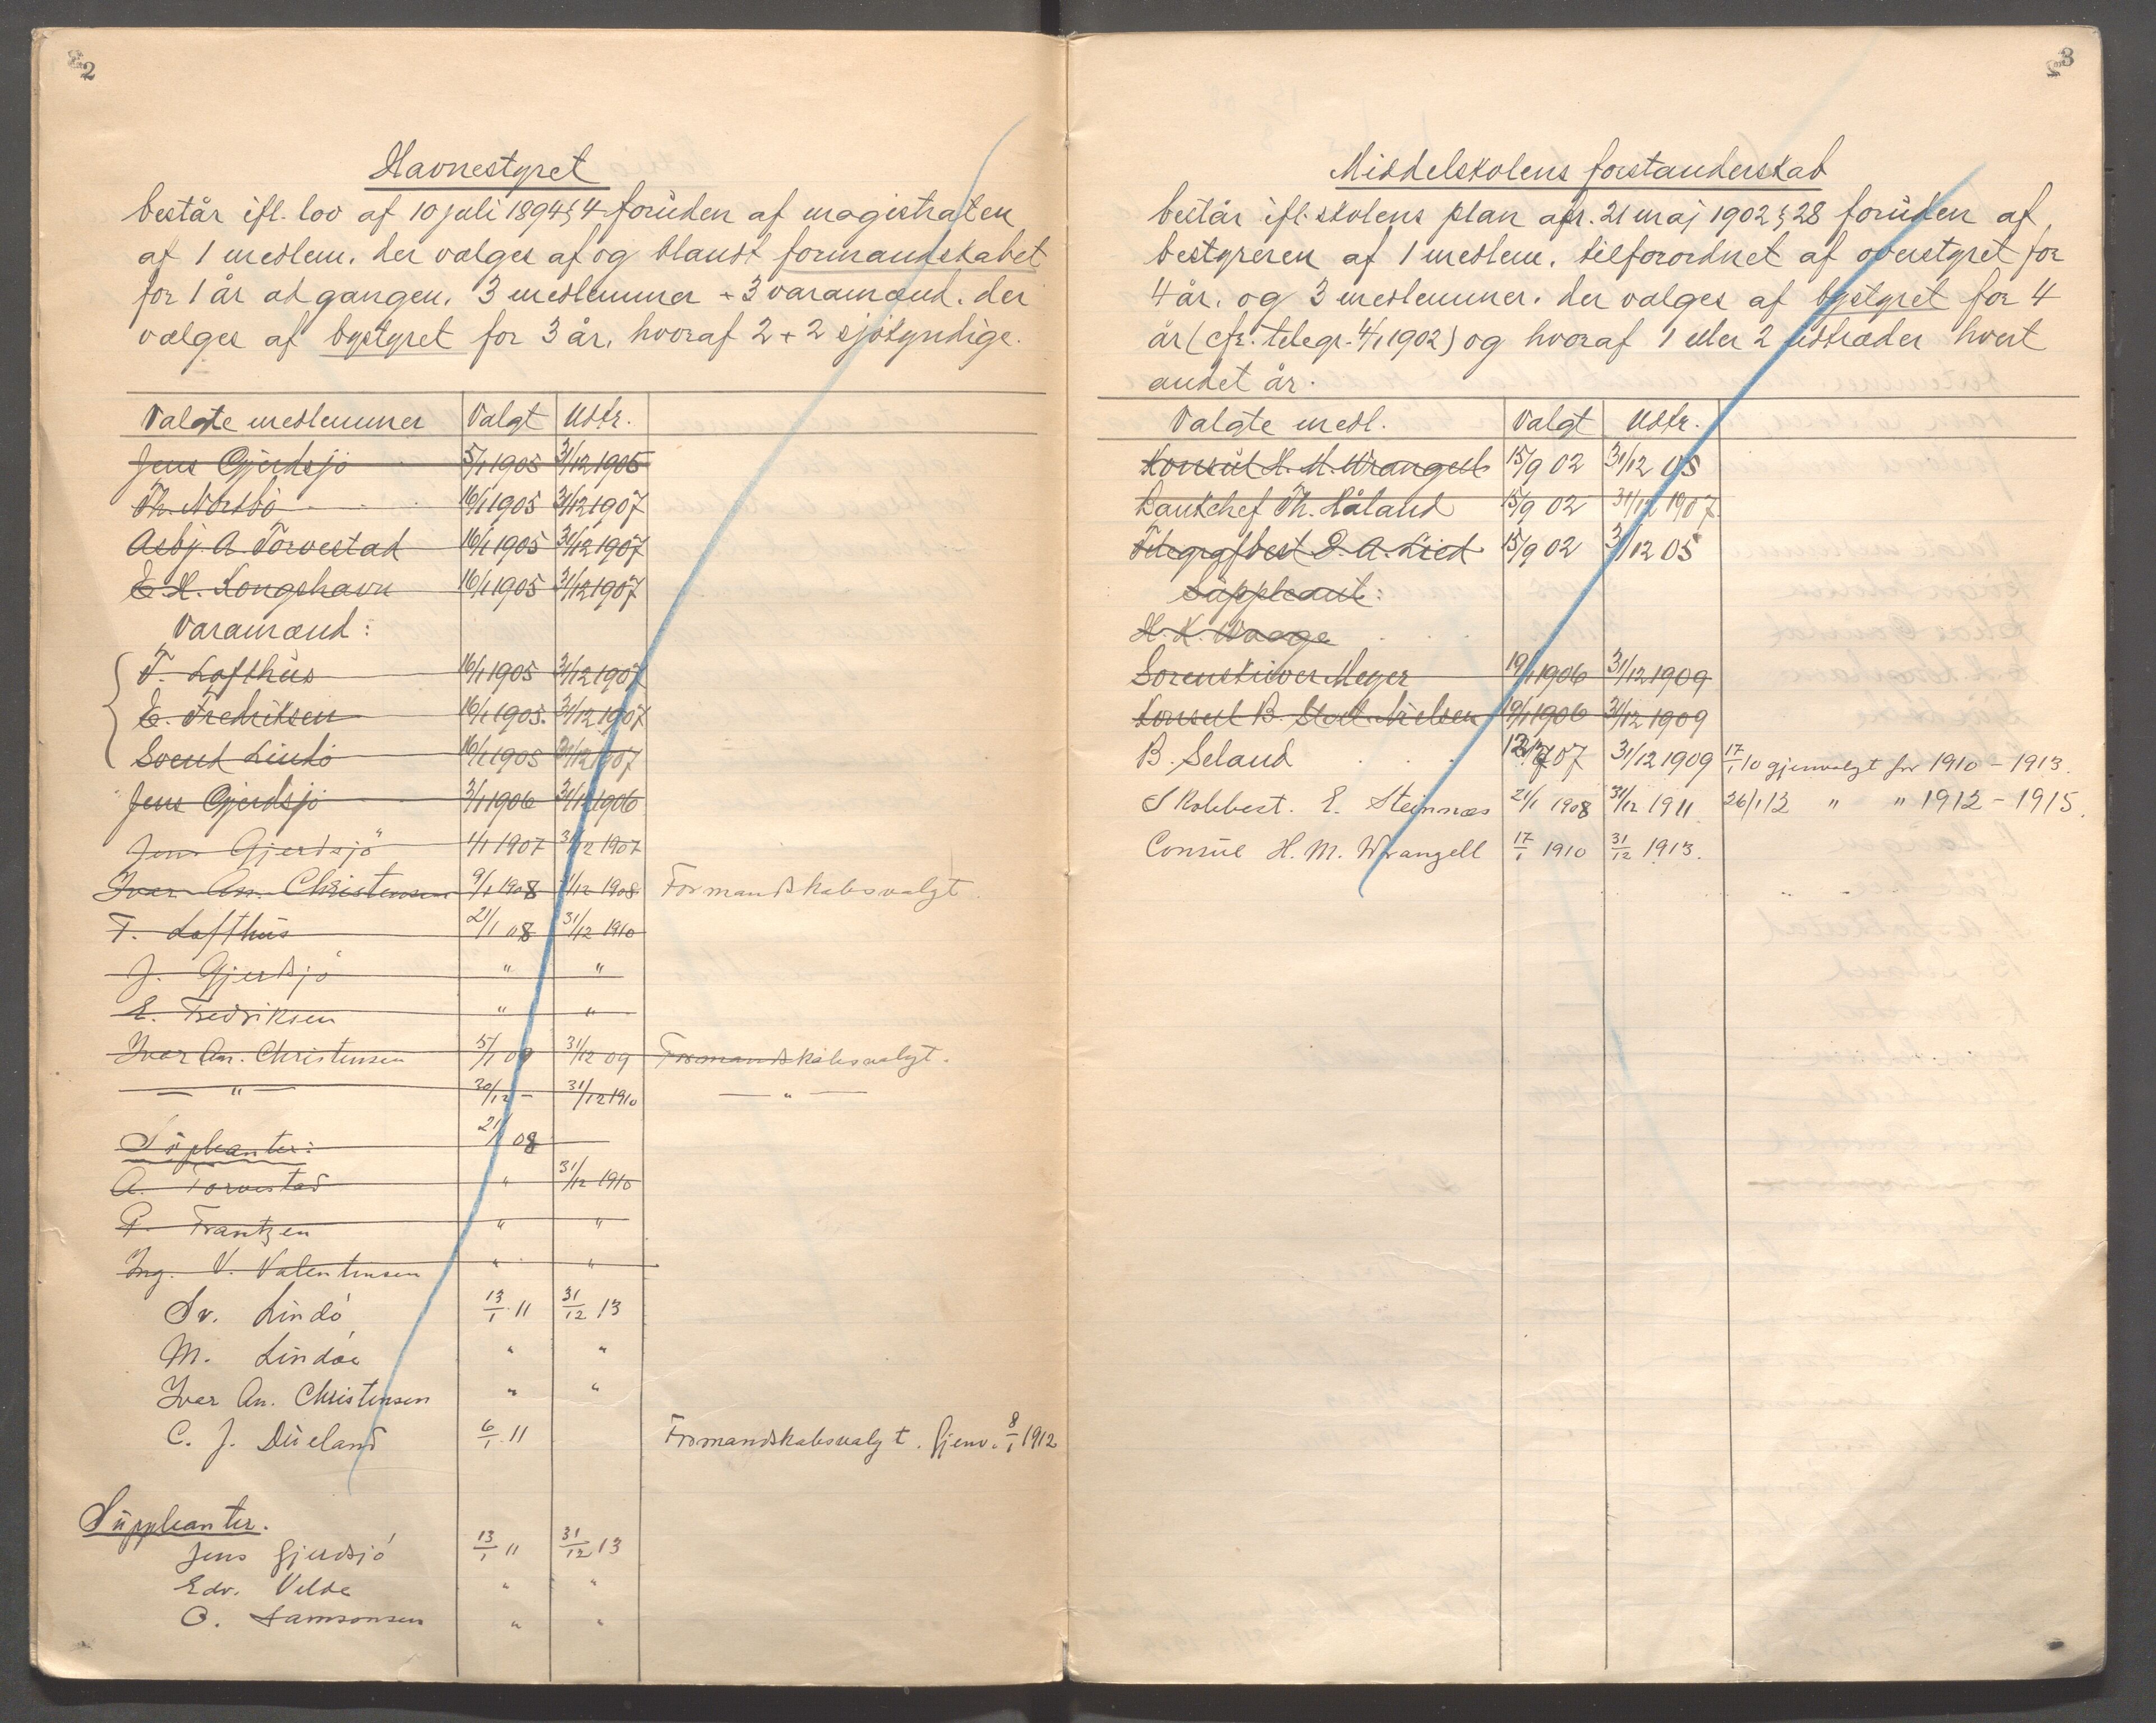 2
Havnestyret
består ifl. lov af 10 juli 1894 § 4 foruden af magistraten
af 1 medlem, der vælges af og blandt formandskabet
for 1 år ad gangen, 3 medlemmer + 3 varamænd, der
vælges af bystyret for 3 år, hvoraf 2 + 2 sjökyndige.
Valgte medlemmer Valgt Udtr.
Jens Gjerdsjö 5/1 1905 31/12 1905
Th. Nordbö 16/1 1905 31/12 1907
Asbj. A. Torvestad 16/1 1905 31/12 1907
E. H. Longshavn 16/1 1905 31/12 1907
Varamænd:
T. Lofthus 16/1 1905 31/12 1907
E. Fredriksen 16/1 1905. 31/12 1907
Svend Lindö 16/1 1905 31/12 1907
Jens Gjerdsjö 3/1 1906 31/12 1906
Jens Gjerdsjö 4/1 1907 31/12 1907
Ivar An. Christensen 9/1 1908 31/12 1908 Formandskabsvalgt.
T. Lofthus 21/1 08 31/12 1910
J. Gjerdsjö " "
E. Fredriksen " "
Ivar An. Christensen 5/1 09 31/12 09 Formandskabsvalgt.
— " — 30/12 - 31/12 1910 — " —
Supleanter: 21/1 08
A. Torvestad " 31/12 1910
P. Frantzen " "
Ing. V. Valentinsen " "
Sv. Lindö 13/1 11 31/12 13
M. Lindöe " "
Ivar An. Christensen " "
C. J. Dueland 6/1 11 Formandskabsvalgt. Gjenv. 8/1 1912
Suppleanter.
Jens Gjerdsjö 13/1 11 31/12 13
Edv. Velde " "
O. Samsonsen " "
3
Middelskolens forstanderskab
består ifl. skolens plan apr. 21 maj 1902 § 28 foruden af
bestyreren af 1 medlem, tilforordnet af overstyret for
4 år, og 3 medlemmer, der vælges af bystyret for 4
år (cfr. telegr. 4/1 1902) og hvoraf 1 eller 2 udtræder hvert
andet år.
Valgte medl. Valgt Udtr.
Konsul H. M. Wrangell 15/9 02 31/12 05
Bankchef Th. Håland 15/9 02 31/12 1907
Telegrfbest O. A. Lied 15/9 02 31/12 05
Suppleant:
H. K. Waage
Sorenskriver Meyer 19/1 1906 31/12 1909
Konsul B. Stolt-Nielsen 19/1 1906 31/12 1909
B. Seland 07 31/12 1909 17/1 10 gjenvalgt for 1910 - 1913.
Skolebest. E. Steinnæs 21/1 1908 31/12 1911 26/1 12 " " 1912 - 1915.
Consul H. M. Wrangell 17/1 1910 31/12 1913.